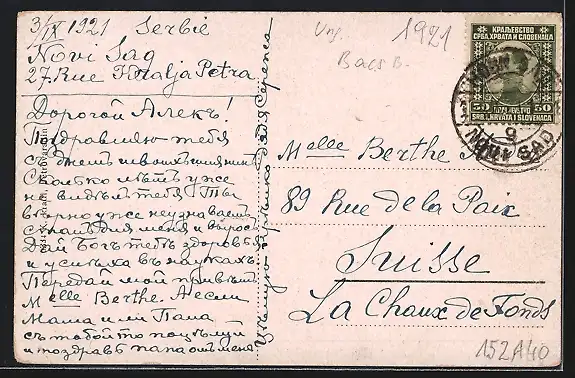 3/IX 1921 Serbie
Novi Sad
27. Rue Kralja Petra
Дорогой Алекъ!
Поздравляю тебя
съ днемъ твоихъ именинъ
Сколько лѣтъ уже
не видѣлъ тебя. Ты
вѣрно уже не узнаешь
меня и выросъ
Дай Богъ тебѣ здоровья
и успѣха въ наукахъ.
Передай мой привѣтъ
Melle Berthe. А если
Мама или Папа
съ тобой то поцѣлуй
и поздравь папа отъ меня
Цѣлую крѣпко дядя
Ung.
1921
Bacs B.
КРАЉЕВСТВО
СРБА, ХРВАТА И СЛОВЕНАЦА
50 50
SRBA, HRVATA I SLOVENACA
NOVI SAD
Melle Berthe
89 Rue de la Paix
Suisse
La Chaux de Fonds
152A40